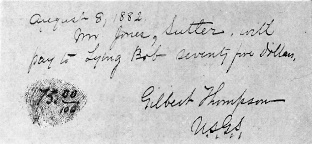 August 8, 1882
Mr Jones, Sutler, will
pay to Lying Bob seventy five Dollars.
75 00/100
Gilbert Thompson
U.S.G.S.